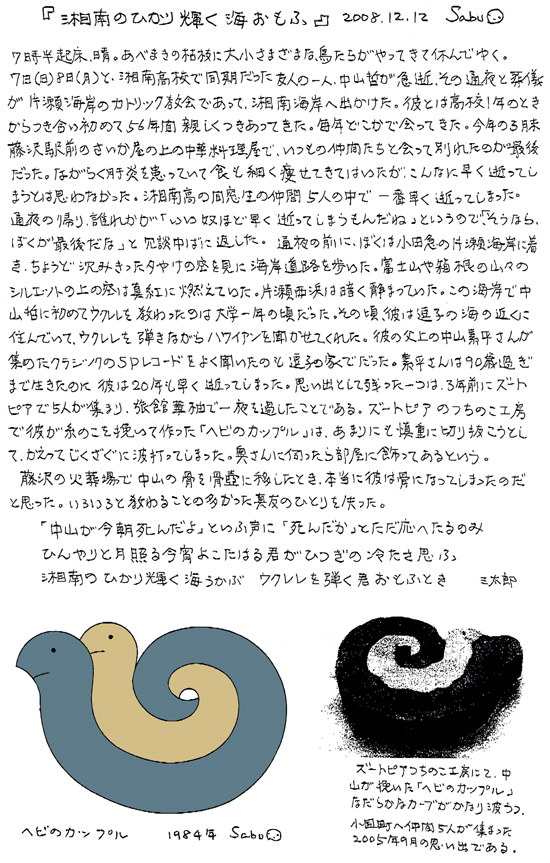 『湘南のひかり輝く海おもふ』 2008.12.12 Sabu
7時半起床、晴。あべまきの枯枝に大小さまざまな鳥たちがやってきて休んでゆく。
7日(日)8日(月)と、湘南高校で同期だった友人の一人、中山哲が急逝、その通夜と葬儀
が片瀬海岸のカトリック教会であって、湘南海岸へ出かけた。彼とは高校1年のとき
からつき合い初めて56年間親しくつきあってきた。毎年どこかで会ってきた。今年の3月末
藤沢駅前のさいか屋の上の中華料理屋で、いつもの仲間たちと会って別れたのが最後
だった。ながらく肝炎を患っていて食も細く痩せてきてはいたが、こんなに早く逝ってし
まうとは思わなかった。湘南高の同窓生の仲間5人の中で一番早く逝ってしまった。
通夜の帰り、誰れかが「いい奴ほど早く逝ってしまうもんだね」というので、「そうなら、
ぼくが最後だな」と冗談半ばに返した。通夜の前に、ぼくは小田急の片瀬海岸に着
き、ちょうど沈みきった夕やけの空を見に海岸道路を歩いた。富士山や箱根の山々の
シルエットの上の空は真紅に燃えていた。片瀬西浜は暗く静まっていた。この海岸で中
山哲に初めてウクレレを教わったのは大学一年の頃だった。その頃、彼は逗子の海の近くに
住んでいて、ウクレレを弾きながらハワイアンを聞かせてくれた。彼の父上の中山素平さんが
集めたクラシックのSPレコードをよく聞いたのも逗子の家でだった。素平さんは90歳過ぎ
まで生きたのに彼は20年も早く逝ってしまった。思い出として残った一つは、3年前にズート
ピアで5人が集まり、旅館華柚で一夜を過したことである。ズートピアのつちのこ工房
で彼が糸のこを挽いて作った「ヘビのカップル」は、あまりにも慎重に切り抜こうとし
て、かえってじくざぐに波打ってしまった。奥さんに伺ったら部屋に飾ってあるという。
藤沢の火葬場で中山の骨を骨壺に移したとき、本当に彼は骨になってしまったのだ
と思った。いろいろと教わることの多かった真友のひとりを失った。
「中山が今朝死んだよ」といふ声に「死んだか」とただ応へたるのみ
ひんやりと月照る今宵よこたはる君がひつぎの冷たさ思ふ
湘南のひかり輝く海うかぶ ウクレレを弾く君おもふとき 三太郎
ヘビのカップル 1984年 Sabu
ズートピアつちのこ工房にて、中
山が挽いた「ヘビのカップル」
なだらかなカーブがかなり波うつ。
小国町へ仲間5人が集まった
2005年9月の思い出である。